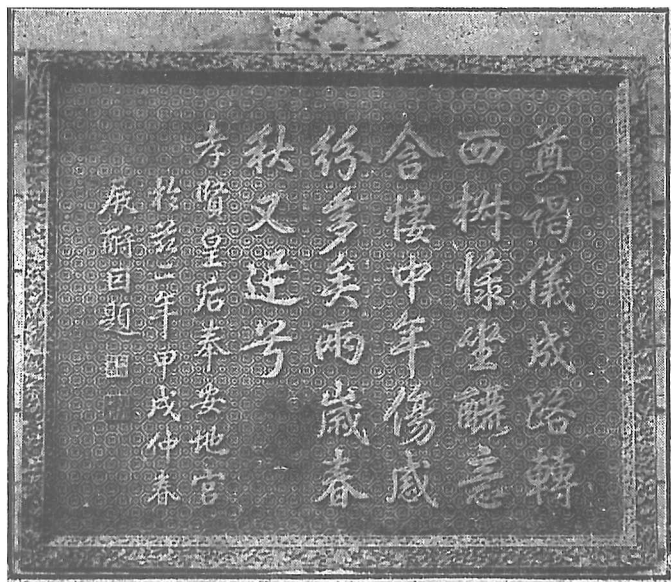 奠謁儀成路轉
西坐意
含悽中年傷感
紛多矣兩歲春
秋又兮
孝賢皇后奉安地宮
於茲二年甲戌仲春
展酹自題